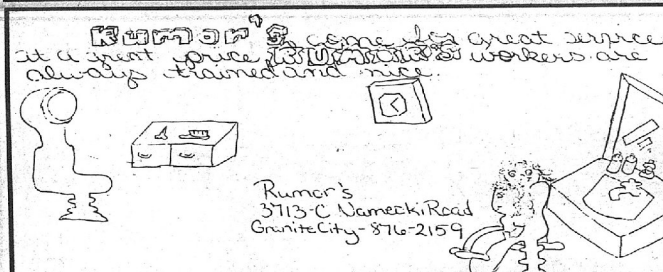 Rumor's come for great service
at a great price, RUMOR'S workers are
always trained and nice.
Rumor's
3713-C Nameoki Road
Granite City-876-2159